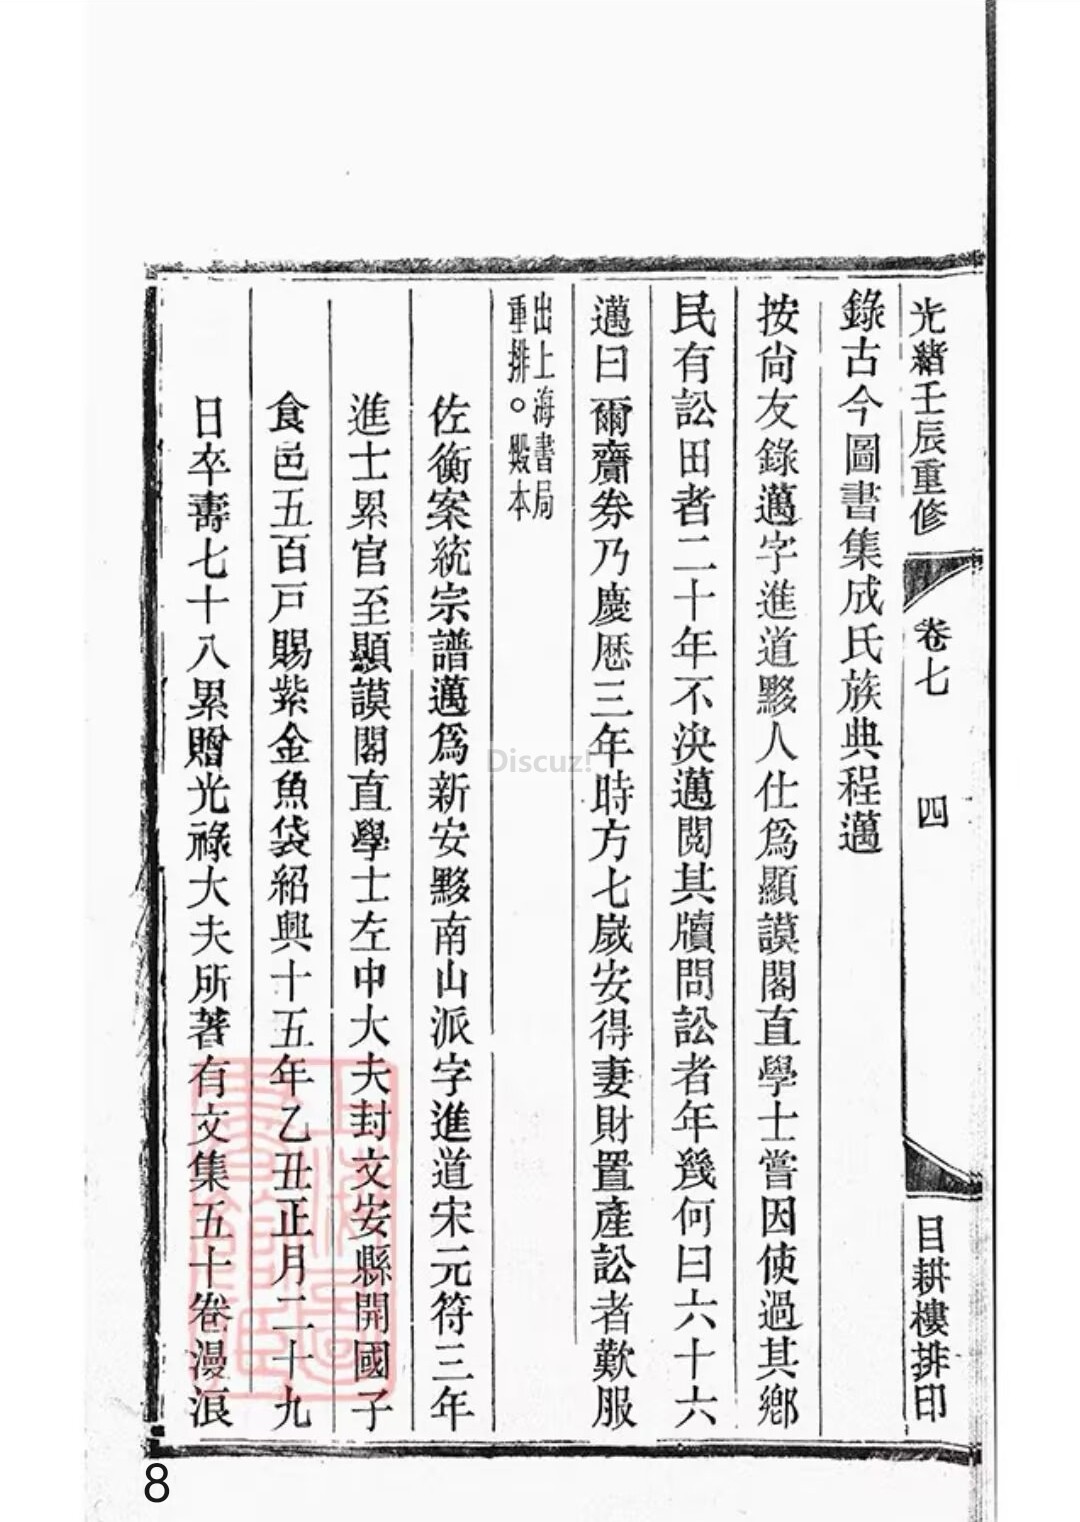 光緒壬辰重修 卷七 四 目耕樓排印
錄古今圖書集成氏族典程邁
按尙友錄邁字進道黟人仕爲顯謨閣直學士嘗因使過其鄕
民有訟田者二十年不決邁閱其牘問訟者年幾何曰六十六
邁曰爾齎券乃慶歷三年時方七歲安得妻財置產訟者歎服
出上海書局
重排。殿本
佐衡案統宗譜邁爲新安黟南山派字進道宋元符三年
進士累官至顯謨閣直學士左中大夫封文安縣開國子
食邑五百戸賜紫金魚袋紹興十五年乙丑正月二十九
日卒壽七十八累贈光祿大夫所著有文集五十卷漫浪
Discuz!
8